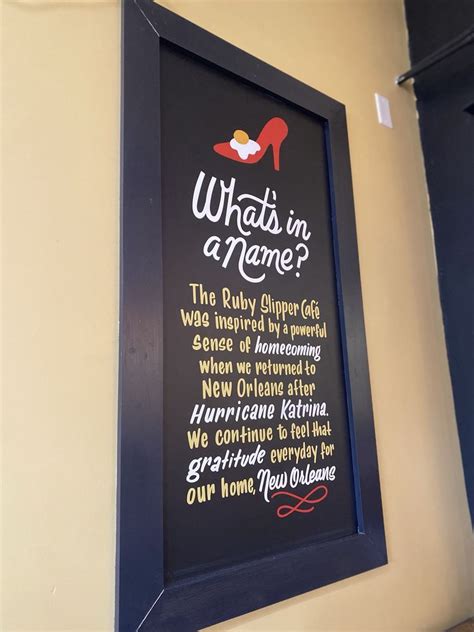 What's in
a name?
The Ruby Slipper Café
was inspired by a powerful
sense of homecoming
when we returned to
New Orleans after
Hurricane Katrina.
We continue to feel that
gratitude everyday for
our home, New Orleans